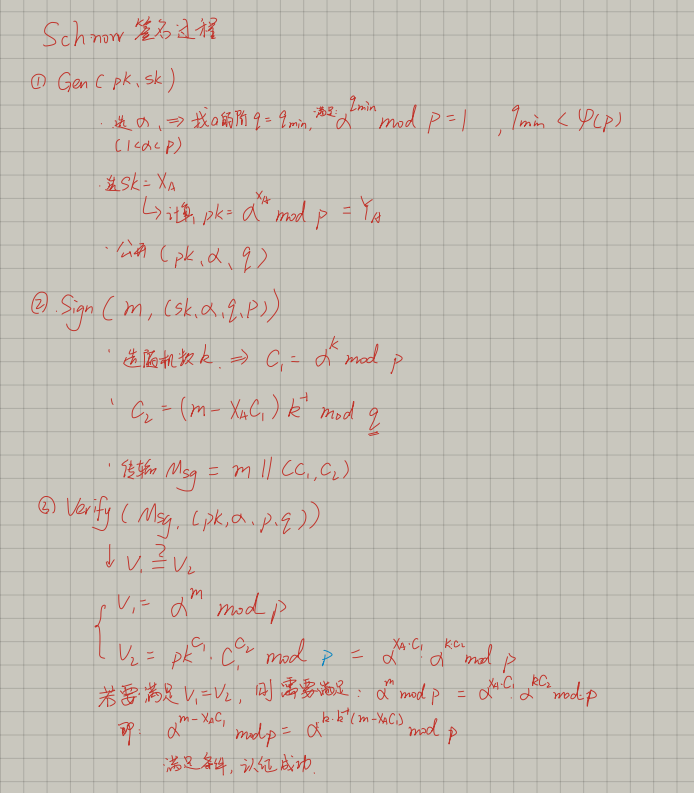 Schnorr 签名过程
① Gen(pk, sk)
· 选α, ⇒ 找α的阶 q = q_min, 满足: α^{q_min} mod p = 1 , q_min < φ(p)
(1<α<p)
· 选sk = X_A
↳ 计算 pk = α^{X_A} mod p = Y_A
· 公开 (pk, α, q)
② Sign (m, (sk, α, q, p))
· 选随机数k ⇒ C_1 = α^k mod p
· C_2 = (m - X_A C_1) k^{-1} mod q
· 传输 Msg = m || (C_1, C_2)
③ Verify (Msg, (pk, α, p, q))
↓ V_1 ≟ V_2
V_1 = α^m mod p
V_2 = pk^{C_1} · C_1^{C_2} mod p = α^{X_A·C_1} · α^{kC_2} mod p
若要满足 V_1=V_2, 则需要满足: α^m mod p = α^{X_A·C_1} · α^{kC_2} mod p
即: α^{m-X_A C_1} mod p = α^{k·k^{-1}(m-X_A C_1)} mod p
满足条件, 认证成功.